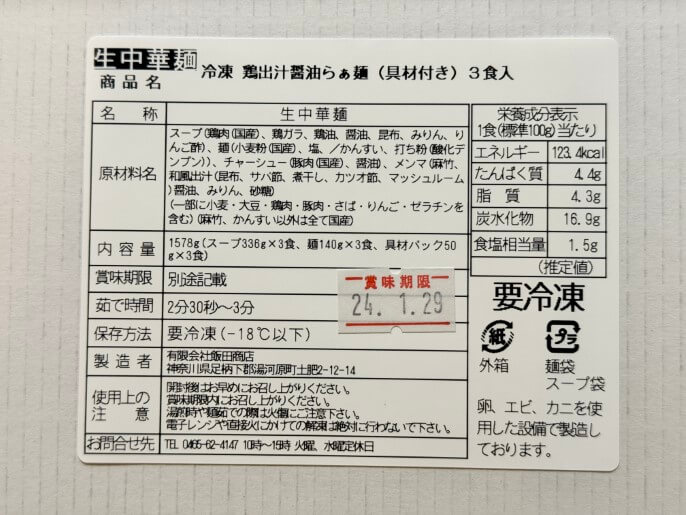 生中華麺
商品名
冷凍 鶏出汁醤油らぁ麺（具材付き）３食入
名称
生中華麺
原材料名
スープ(鶏肉(国産)、鶏ガラ、鶏油、醤油、昆布、みりん、り
んご酢)、麺(小麦粉(国産)、塩、／かんすい、打ち粉(酸化デ
ンプン))、チャーシュー(豚肉(国産)、醤油)、メンマ(麻竹、
和風出汁(昆布、サバ節、煮干し、カツオ節、マッシュルーム
)醤油、みりん、砂糖)
(一部に小麦・大豆・鶏肉・豚肉・さば・りんご・ゼラチンを
含む)(麻竹、かんすい以外は全て国産)
内容量
1578g(スープ336g×3食、麺140g×3食、具材パック50
g×3食)
賞味期限
別途記載
茹で時間
2分30秒～3分
保存方法
要冷凍(-18℃以下)
製造者
有限会社飯田商店
神奈川県足柄下郡湯河原町土肥2-12-14
使用上の
注意
開封後はお早めにお召し上がりください。
賞味期限内にお召し上がりください。
湯煎時や麺茹での際は火傷にご注意下さい。
電子レンジや直接火にかけての解凍は絶対に行わないで下さい。
お問合せ先
TEL 0465-62-4147 10時～15時 火曜、水曜定休日
賞味期限
24. 1.29
栄養成分表示
1食(標準100g)当たり
エネルギー 123.4kcal
たんぱく質 4.4g
脂質 4.3g
炭水化物 16.9g
食塩相当量 1.5g
(推定値)
要冷凍
紙
プラ
外箱
麺袋
スープ袋
卵、エビ、カニを使
用した設備で製造し
ております。